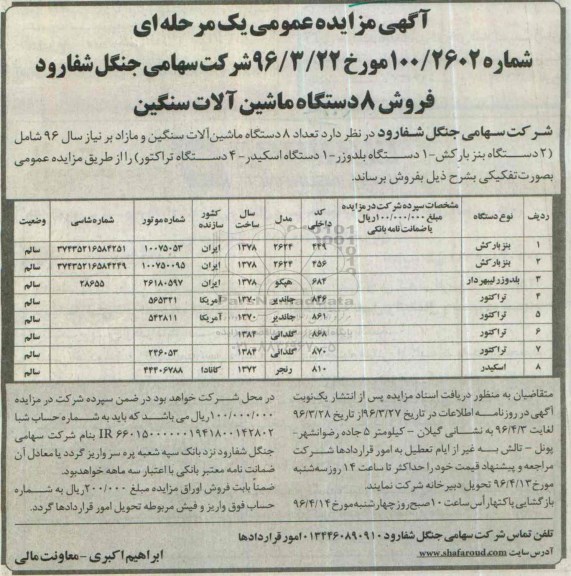 آگهی مزایده عمومی یک مرحله ای
شماره ۱۰۰/۲۶۰۲ مورخ ۹۶/۳/۲۲ شرکت سهامی جنگل شفارود
فروش ۸ دستگاه ماشین آلات سنگین
شرکت سهامی جنگل شفارود در نظر دارد تعداد ۸ دستگاه ماشین‌آلات سنگین و مازاد بر نیاز سال ۹۶ شامل
(۲ دستگاه بنز بارکش - ۱ دستگاه بلدوزر - ۱ دستگاه اسکیدر - ۴ دستگاه تراکتور) را از طریق مزایده عمومی
بصورت تفکیکی بشرح ذیل بفروش برساند.
ردیف نوع دستگاه مشخصات سپرده شرکت در مزایده مبلغ ۱۰۰/۰۰۰/۰۰۰ ریال یا ضمانت نامه بانکی کد داخلی مدل سال ساخت کشور سازنده شماره موتور شماره شاسی وضعیت
۱ بنز بارکش ۴۴۹ ۲۶۲۴ ۱۳۷۸ ایران ۱۰۰۷۵۰۵۳ ۳۷۴۳۵۲۱۶۵۸۴۲۵۱ سالم
۲ بنز بارکش ۴۵۶ ۲۶۲۴ ۱۳۷۸ ایران ۱۰۰۷۵۰۰۹۵ ۳۷۴۳۵۲۱۶۵۸۴۲۴۹ سالم
۳ بلدوزر لیبهر دار ۶۸۴ هپکو ۱۳۷۸ ایران ۲۶۱۸۰۵۹۷ ۲۸۶۵۵ سالم
۴ تراکتور ۸۴۶ جاندیر ۱۳۷۰ آمریکا ۵۶۵۳۲۱ سالم
۵ تراکتور ۸۶۱ جاندیر ۱۳۷۰ آمریکا ۵۴۲۸۱۱ سالم
۶ تراکتور ۸۶۸ گلدانی ۱۳۸۴ سالم
۷ تراکتور ۸۷۰ گلدانی ۱۳۸۴ ۲۳۶۰۵۳ سالم
۸ اسکیدر ۸۱۰ رنجر ۱۳۷۲ کانادا ۴۴۴۰۶۷۸۸ سالم
متقاضیان به منظور دریافت اسناد مزایده پس از انتشار یک‌نوبت
آگهی در روزنامه اطلاعات در تاریخ ۹۶/۳/۲۷ از تاریخ ۹۶/۳/۲۸
لغایت ۹۶/۴/۳ به نشانی گیلان - کیلومتر ۵ جاده رضوانشهر-
پونل - تالش به غیر از ایام تعطیل به امور قراردادها شرکت
مراجعه و پیشنهاد قیمت خود را حداکثر تا ساعت ۱۴ روز سه‌شنبه
مورخ ۹۶/۴/۱۳ تحویل دبیرخانه شرکت نمایند.
بازگشایی پاکتها رأس ساعت ۱۰ صبح روز چهارشنبه مورخ ۹۶/۴/۱۴
در محل شرکت خواهد بود در ضمن سپرده شرکت در مزایده
۱۰۰/۰۰۰/۰۰۰ ریال می باشد که باید به شماره حساب شبا
IR ۶۶۰۱۵۰۰۰۰۰۰۱۹۴۱۸۰۰۱۴۲۸۰۲ بنام شرکت سهامی
جنگل شفارود نزد بانک سپه شعبه پره سر واریز گردد یا معادل آن
ضمانت نامه معتبر بانکی با اعتبار سه ماهه خواهد بود.
ضمناً بابت فروش اوراق مزایده مبلغ ۲۰۰/۰۰۰ ریال به شماره
حساب فوق واریز و فیش مربوطه تحویل امور قراردادها گردد.
تلفن تماس شرکت سهامی جنگل شفارود ۰۱۳۴۴۶۰۸۹۰۹۱۰ امور قراردادها
آدرس سایت www.shafaroud.com
ابراهیم اکبری - معاونت مالی